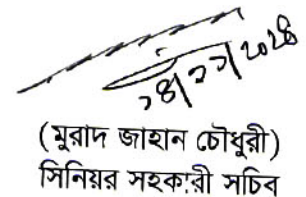 ২৪/১১/২০২৪
(মুরাদ জাহান চৌধুরী)
সিনিয়র সহকারী সচিব